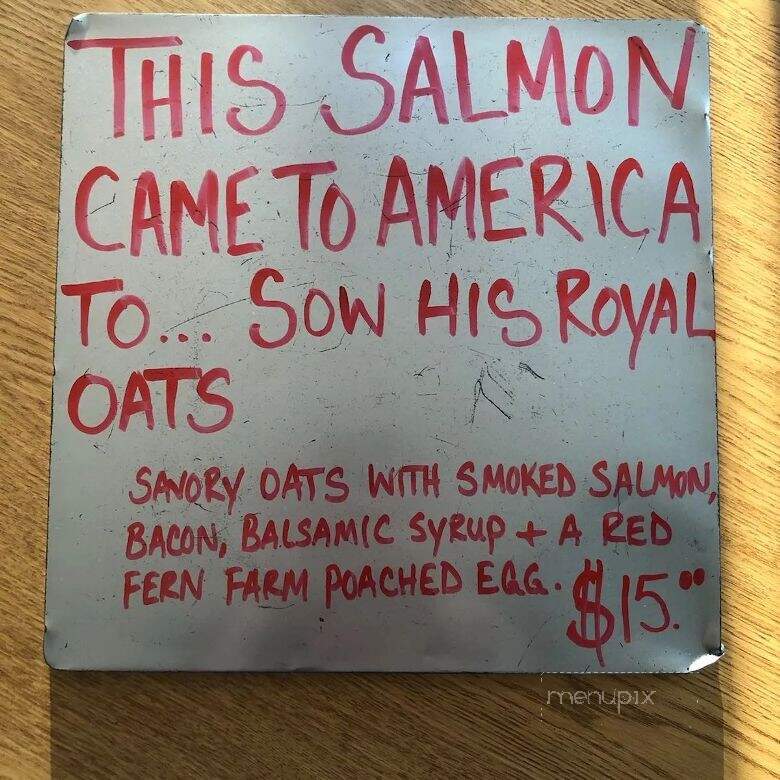 THIS SALMON
CAME TO AMERICA
TO... SOW HIS ROYAL
OATS
SAVORY OATS WITH SMOKED SALMON,
BACON, BALSAMIC SYRUP + A RED
FERN FARM POACHED EGG. $15.00
menupix